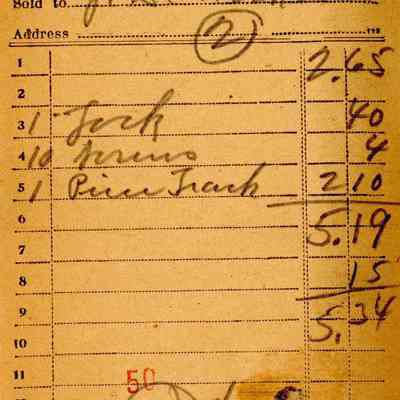 Sold to
Address (2)
1 2.65
2
3 1 Lock 40
4 10 screws 4
5 1 Piece Track 2 10
6 5.19
7
8 15
9 5.34
10
11
50